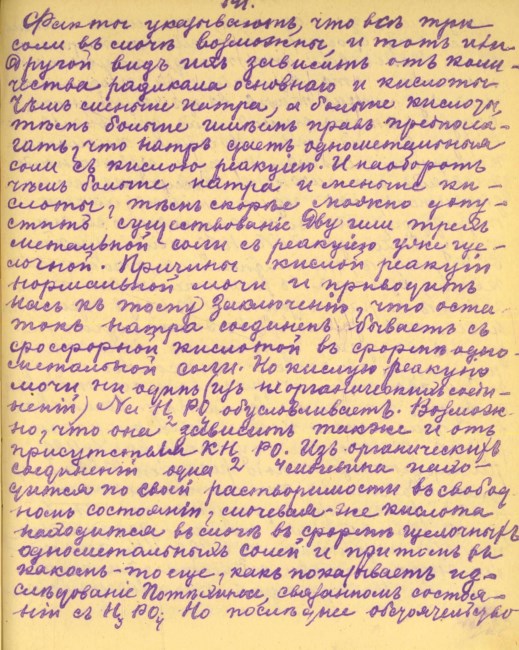 Факты указываютъ, что все три
соли въ мочѣ возможны, и тотъ или
другой видъ ихъ зависитъ отъ коли-
чества радикала основнаго и кислоты
Чѣмъ меньше натра, а больше кислоты,
тѣмъ больше имѣемъ правъ предпола-
гать, что натръ даетъ однометальныя
соли съ кислою реакціею. И наоборотъ
чѣмъ больше натра и меньше ки-
слоты, тѣмъ скорѣе можно допу-
стить существованіе Дву или трехъ
метальной соли съ реакціею уже ще-
лочной. Причины кислой реакціи
нормальной мочи и приводитъ
насъ къ тому заключенію, что оста-
токъ натра соединенъ бываетъ съ
фосфорной кислотой въ формѣ одно-
метальной соли. Но кислую реакцію
мочи ни одинъ (изъ неорганическихъ соеди-
неній) Na H2 PO4 обусловливаетъ. Возмож-
но, что она зависитъ также и отъ
присутствія KH2 PO4. Изъ органическихъ
соединеній одна мочевина нахо-
дится по своей растворимости въ свобод
номъ состояніи, мочевая-же кислота
находится въ мочѣ въ формѣ щелочныхъ
однометальныхъ солей и притомъ въ
какомъ-то еще, какъ показываетъ из-
слѣдованіе связанномъ состоя-
ніи съ H3 PO4 Но послѣднее обстоятельство